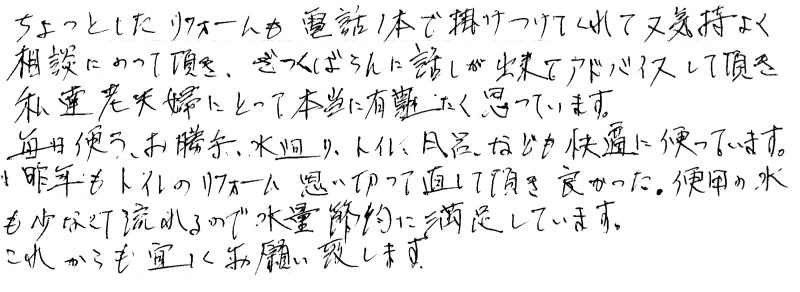 ちょっとしたリフォームも電話1本で掛けつけてくれて又気持よく
相談にのって頂き、ざっくばらんに話しが出来てアドバイスして頂き
私達老夫婦にとって本当に有難たく思っています。
毎日使う、お勝手、水廻り、トイレ、風呂、なども快適に使っています。
昨年もトイレのリフォーム思い切って直して頂き良かった。使用の水
も少なくて流れるので水量節約に満足しています。
これからも宜しくお願い致します